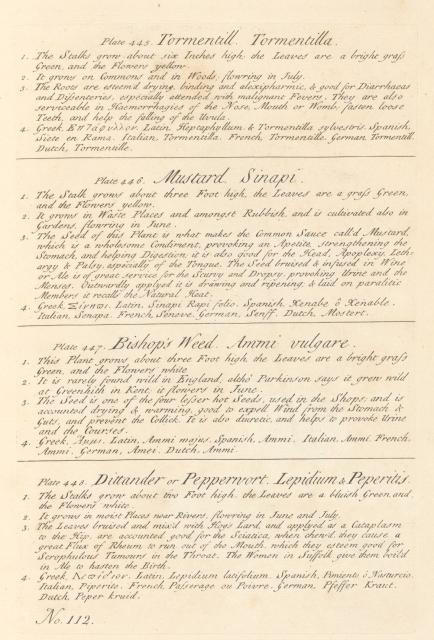 Plate 445. Tormentill. Tormentilla.
1. The Stalks grow about six Inches high, the Leaves are a bright grass
Green, and the Flowers yellow.
2. It grows on Commons and in Woods, flowring in July.
3. The Roots are esteem'd drying, binding and alexipharmic, & good for Diarrhaeas
and Dissenteries, especially attended with malignant Fevers. They are also
serviceable in Haemorrhagies of the Nose, Mouth or Womb, fasten loose
Teeth, and help the falling of the Uvula.
4. Greek, Latin, Heptaphyllum & Tormentilla sylvestris. Spanish,
Siete en Rama. Italian, Tormentilla. French, Tormentille. German Tormentill.
Dutch, Tormentille.
Plate 446. Mustard. Sinapi.
1. The Stalk grows about three Foot high, the Leaves are a grass Green,
and the Flowers yellow.
2. It grows in Waste Places and amongst Rubbish, and is cultivated also in
Gardens, flowring in June.
3. The Seed of this Plant is what makes the Common Sauce call'd Mustard,
which is a wholsome Condiment, provoking an Apetite, strengthening the
Stomach, and helping Digestion; it is also good for the Head, Apoplexy, Leth-
argy & Palsy, especially of the Tongue. The Seed bruised & infused in Wine
or Ale is of great service for the Scurvy and Dropsy, provoking Urine and the
Menses. Outwardly applyed it is drawing and ripening, & laid on paralitic
Members it recalls the Natural Heat.
4. Greek, Σίνηπι. Latin, Sinapi Rapi folio. Spanish, Xenabe ò Xenable.
Italian, Senapa. French, Seneve. German, Senff. Dutch, Mostert.
Plate 447. Bishop's Weed. Ammi vulgare.
1. This Plant grows about three Foot high, the Leaves are a bright grass
Green, and the Flowers white.
2. It is rarely found wild in England, altho' Parkinson says it grew wild
at Greenhith in Kent; it flowers in June.
3. The Seed is one of the four lesser hot Seeds, used in the Shops; and is
accounted drying & warming, good to expell Wind from the Stomach &
Guts, and prevent the Collick. It is also diuretic, and helps to provoke Urine
and the Courses.
4. Greek, Ἄμμι. Latin, Ammi majus. Spanish, Ammi. Italian, Ammi. French,
Ammi. German, Amei. Dutch, Ammi.
Plate 448. Dittander or Pepperwort. Lepidium & Peperitis.
1. The Stalks grow about two Foot high, the Leaves are a bluish Green, and
the Flowers white.
2. It grows in moist Places near Rivers, flowring in June and July.
3. The Leaves bruised and mix'd with Hogs Lard, and applyed as a Cataplasm
to the Hip, are accounted good for the Sciatica, when chew'd, they cause a
great Flux of Rheum to run out of the Mouth, which they esteem good for
Scrophulous Tumours in the Throat. The Women in Suffolk give them boil'd
in Ale to hasten the Birth.
4. Greek, Λεπίδιον. Latin, Lepidium latifolium. Spanish, Pimienta ò Nasturcio.
Italian, Piperite. French, Passerage ou Poivre. German, Pfeffer Kraut.
Dutch, Peper kruid.
No. 112.